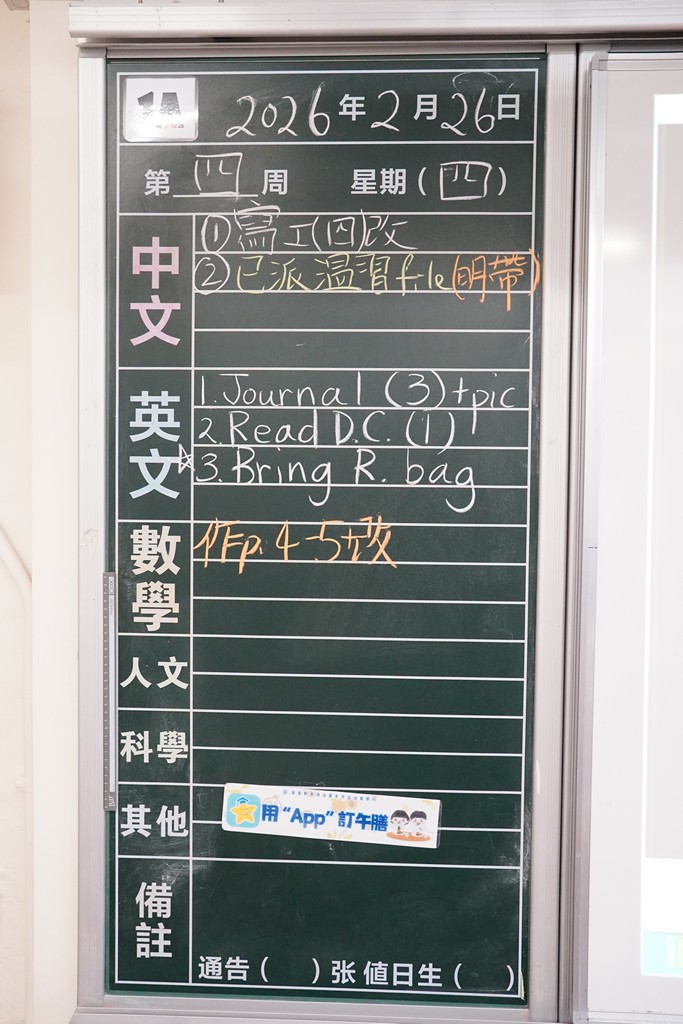 1A
2026年2月26日
第四周 星期(四)
中文
①寫工(四)改
②已派溫習file(明帶)
英文
1. Journal (3)+pic
2. Read D.C. (1)
☆3. Bring R. bag
數學
作p.4-5+改
人文
科學
其他
用“App”訂午膳
備註
通告( )张 值日生( )